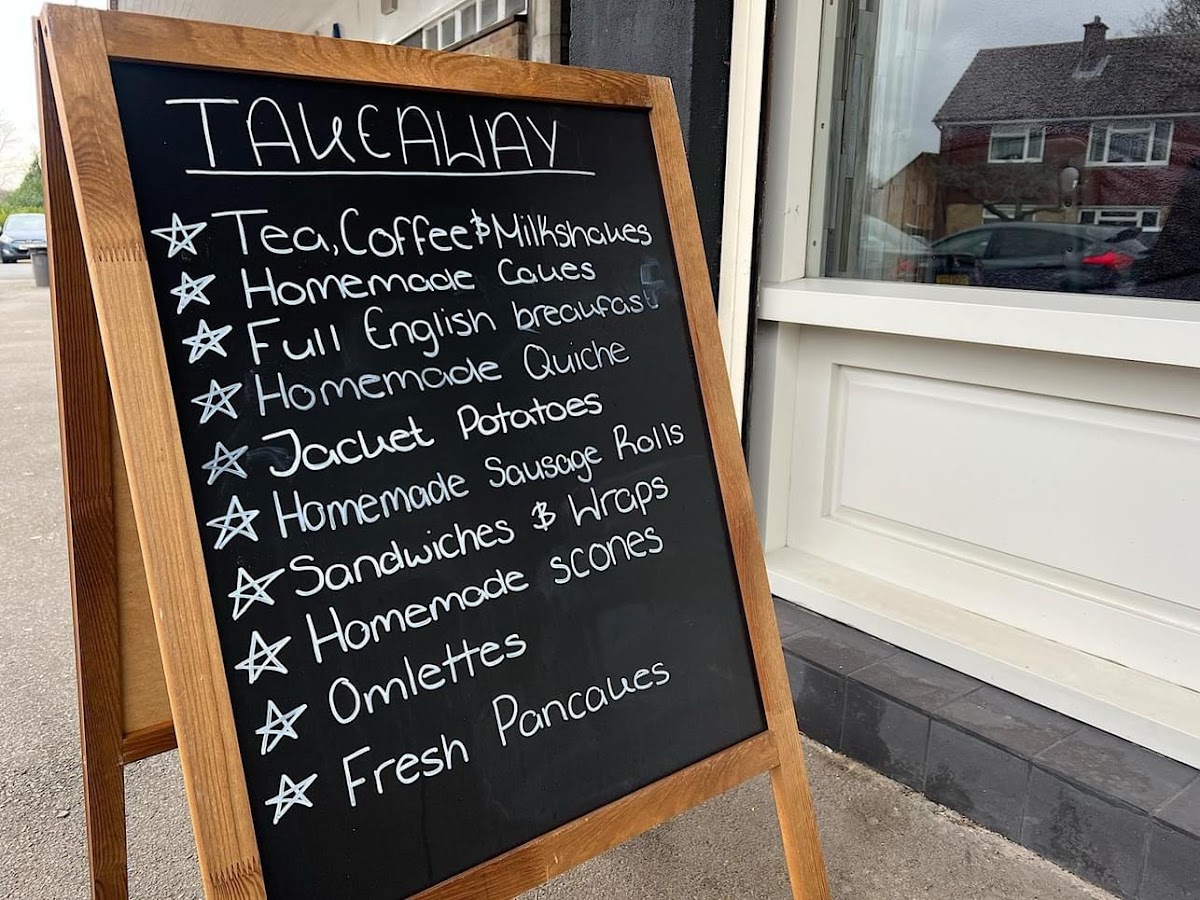 TAKEAWAY
Tea, Coffee & Milkshakes
Homemade Cakes
Full English breakfast
Homemade Quiche
Jacket Potatoes
Homemade Sausage Rolls
Sandwiches & Wraps
Homemade scones
Omlettes
Fresh Pancakes